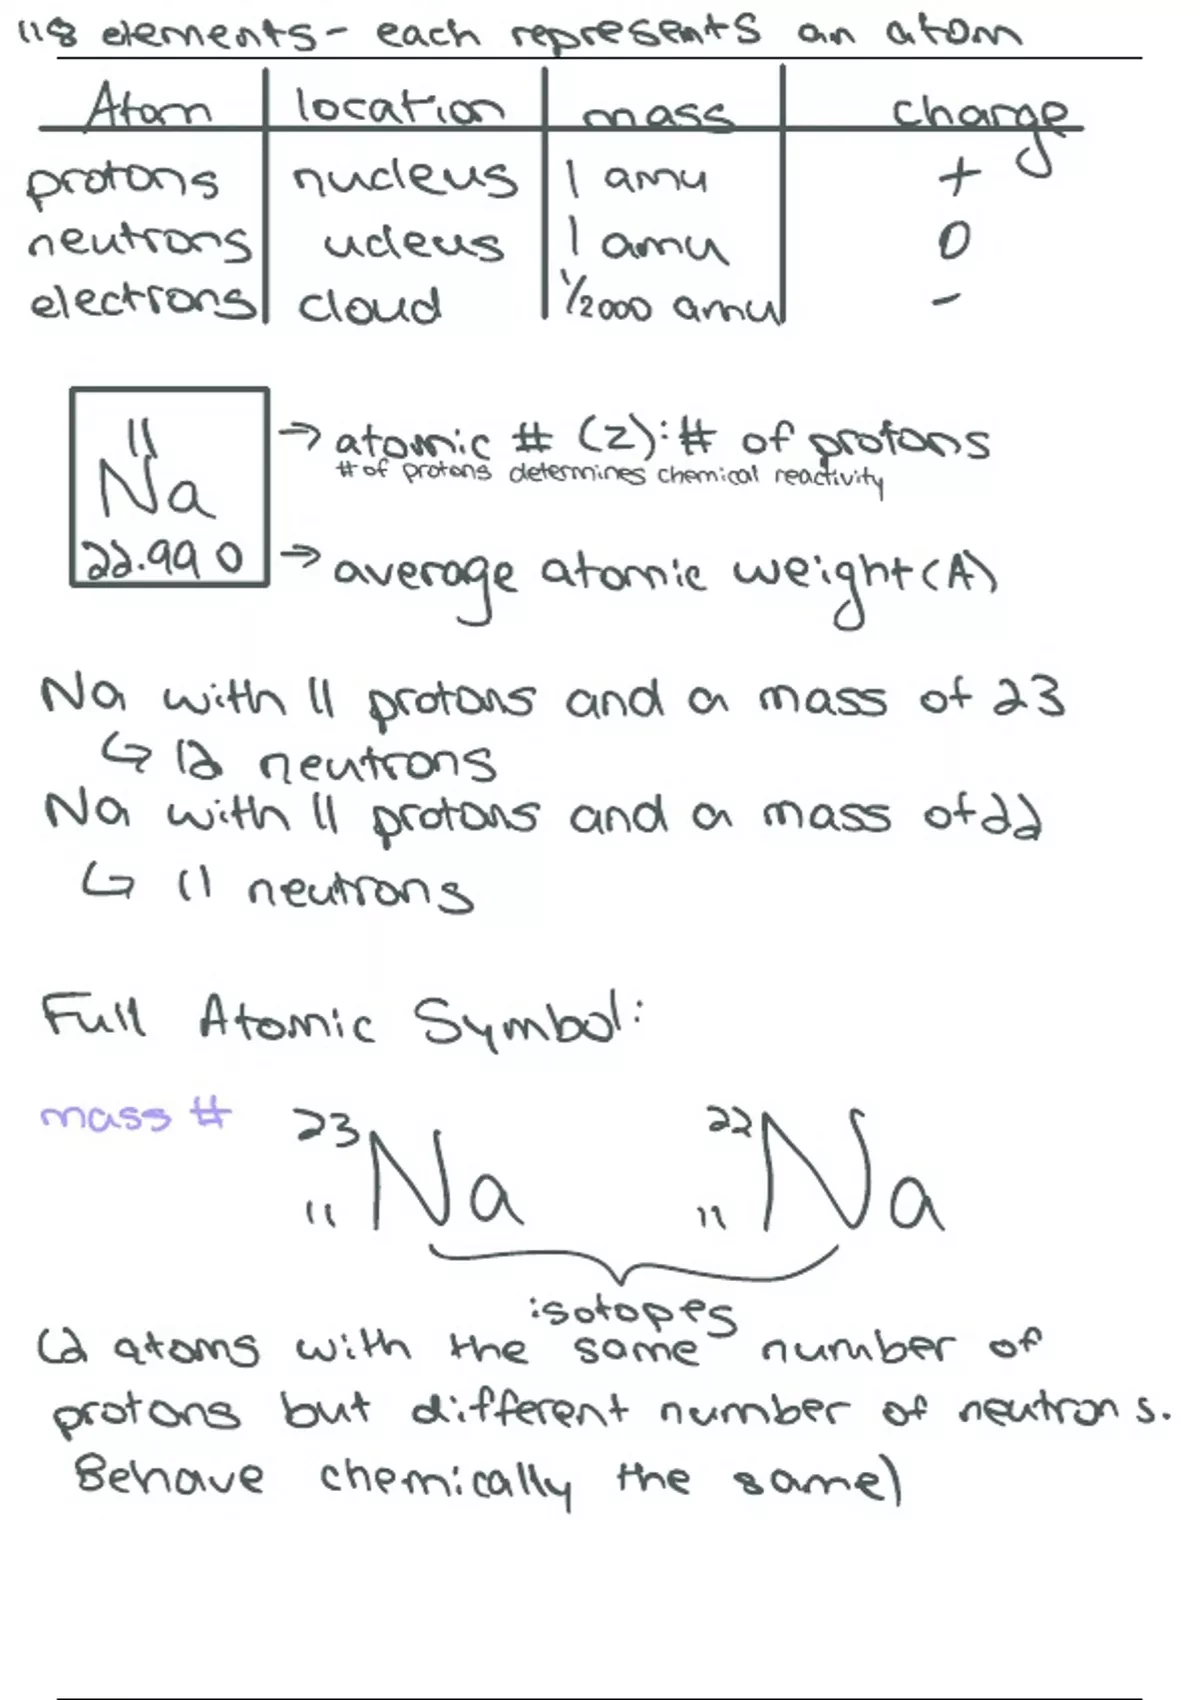 118 elements - each represents an atom
Atom location mass charge
protons nucleus 1 amu +
neutrons ucleus 1 amu 0
electrons cloud 1/2000 amu -
11 → atomic # (Z): # of protons
# of protons determines chemical reactivity
Na
22.990 → average atomic weight (A)
Na with 11 protons and a mass of 23
↳ 12 neutrons
Na with 11 protons and a mass of 22
↳ 11 neutrons
Full Atomic Symbol:
mass # 23 Na 22 Na
11 11
isotopes
(2 atoms with the same number of
protons but different number of neutrons.
Behave chemically the same)